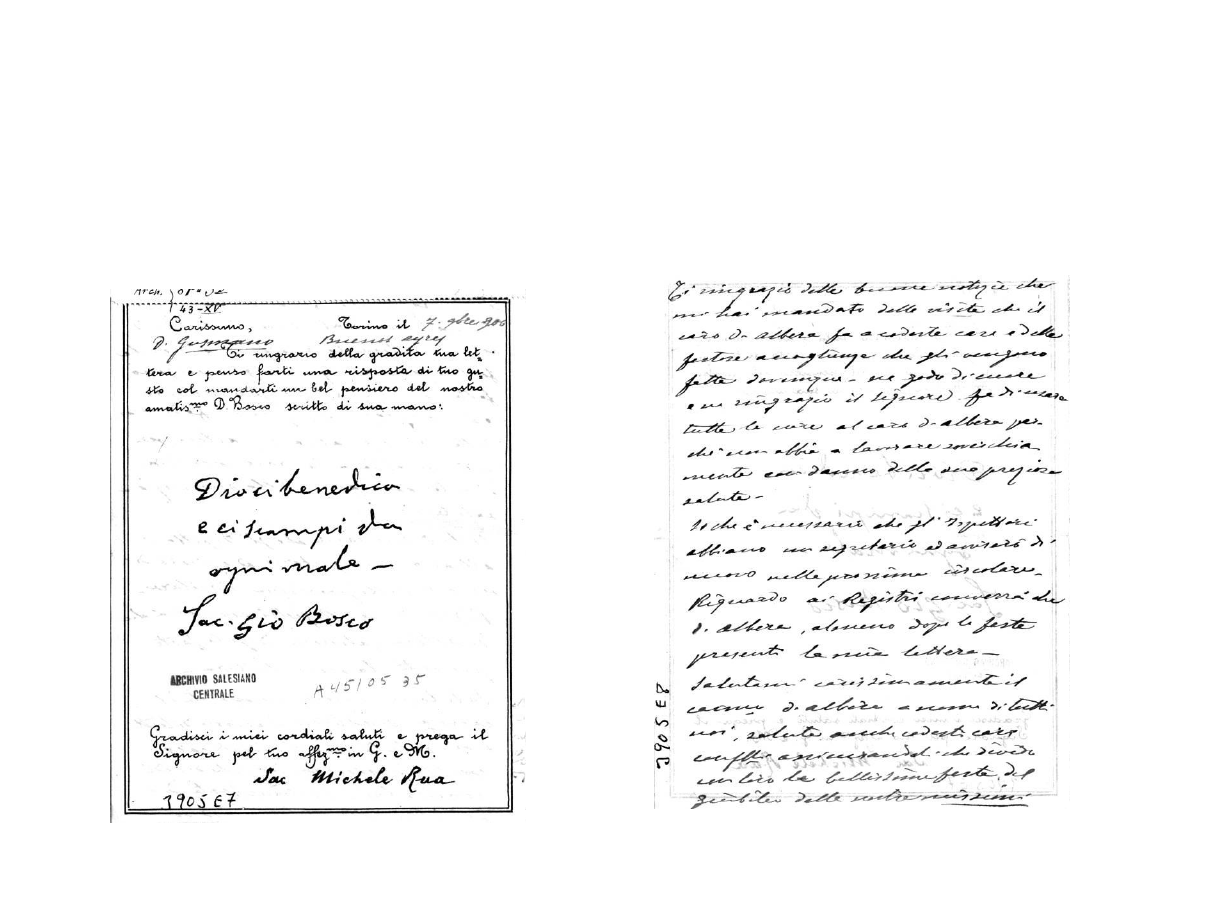 43-XV
Carissimo, Torino il 7. 9bre 900
D. Gusmano Buenos ayres
Ti ringrazio della gradita tua let-
tera e penso farti una risposta di tuo gu-
sto col mandarti un bel pensiero del nostro
amatis.mo D. Bosco scritto di sua mano:
Dio ci benedica
e ci scampi da
ogni male –
Sac. Gio Bosco
ARCHIVIO SALESIANO
CENTRALE
A 45105 35
Gradisci i miei cordiali saluti e prega il
Signore pel tuo affez.mo in G. e M.
Sac Michele Rua
3905 E7
Ti ringrazio delle buone notizie che
mi hai mandato delle visite che il
caro D. Albera fa a codeste case e delle
festose accoglienze che gli vengono
fatte dovunque – ne godo di cuore
e ne ringrazio il Signore. fa di usare
tutte le cure al caro D. Albera per-
chè non abbia a lavorare soverchia
mente con danno della sua preziosa
salute –
So che è necessario che gl' Ispettori
abbiano un segretario ed avviserò di
nuovo nella prossima circolare –
Riguardo ai Registri converrà che
D. Albera, almeno dopo le feste
presenti la mia lettera –
Salutami carissimamente il
D. Albera a nome di tutti
noi, saluta anche codesti cari
confr. che divido
con loro la bellissima festa del
giubileo delle nostre missioni
3905 E8